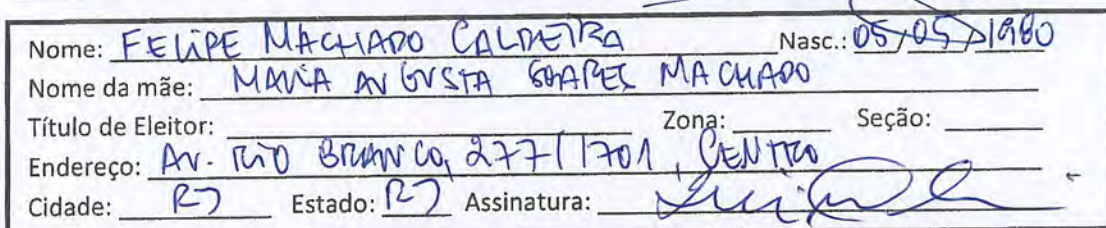 Nome: FELIPE MACHADO CALDEIRA Nasc.: 05/05/1980
Nome da mãe: MARIA AUGUSTA SOARES MACHADO
Título de Eleitor: Zona: Seção:
Endereço: AV. RIO BRANCO, 277/1701, CENTRO
Cidade: RJ Estado: RJ Assinatura: